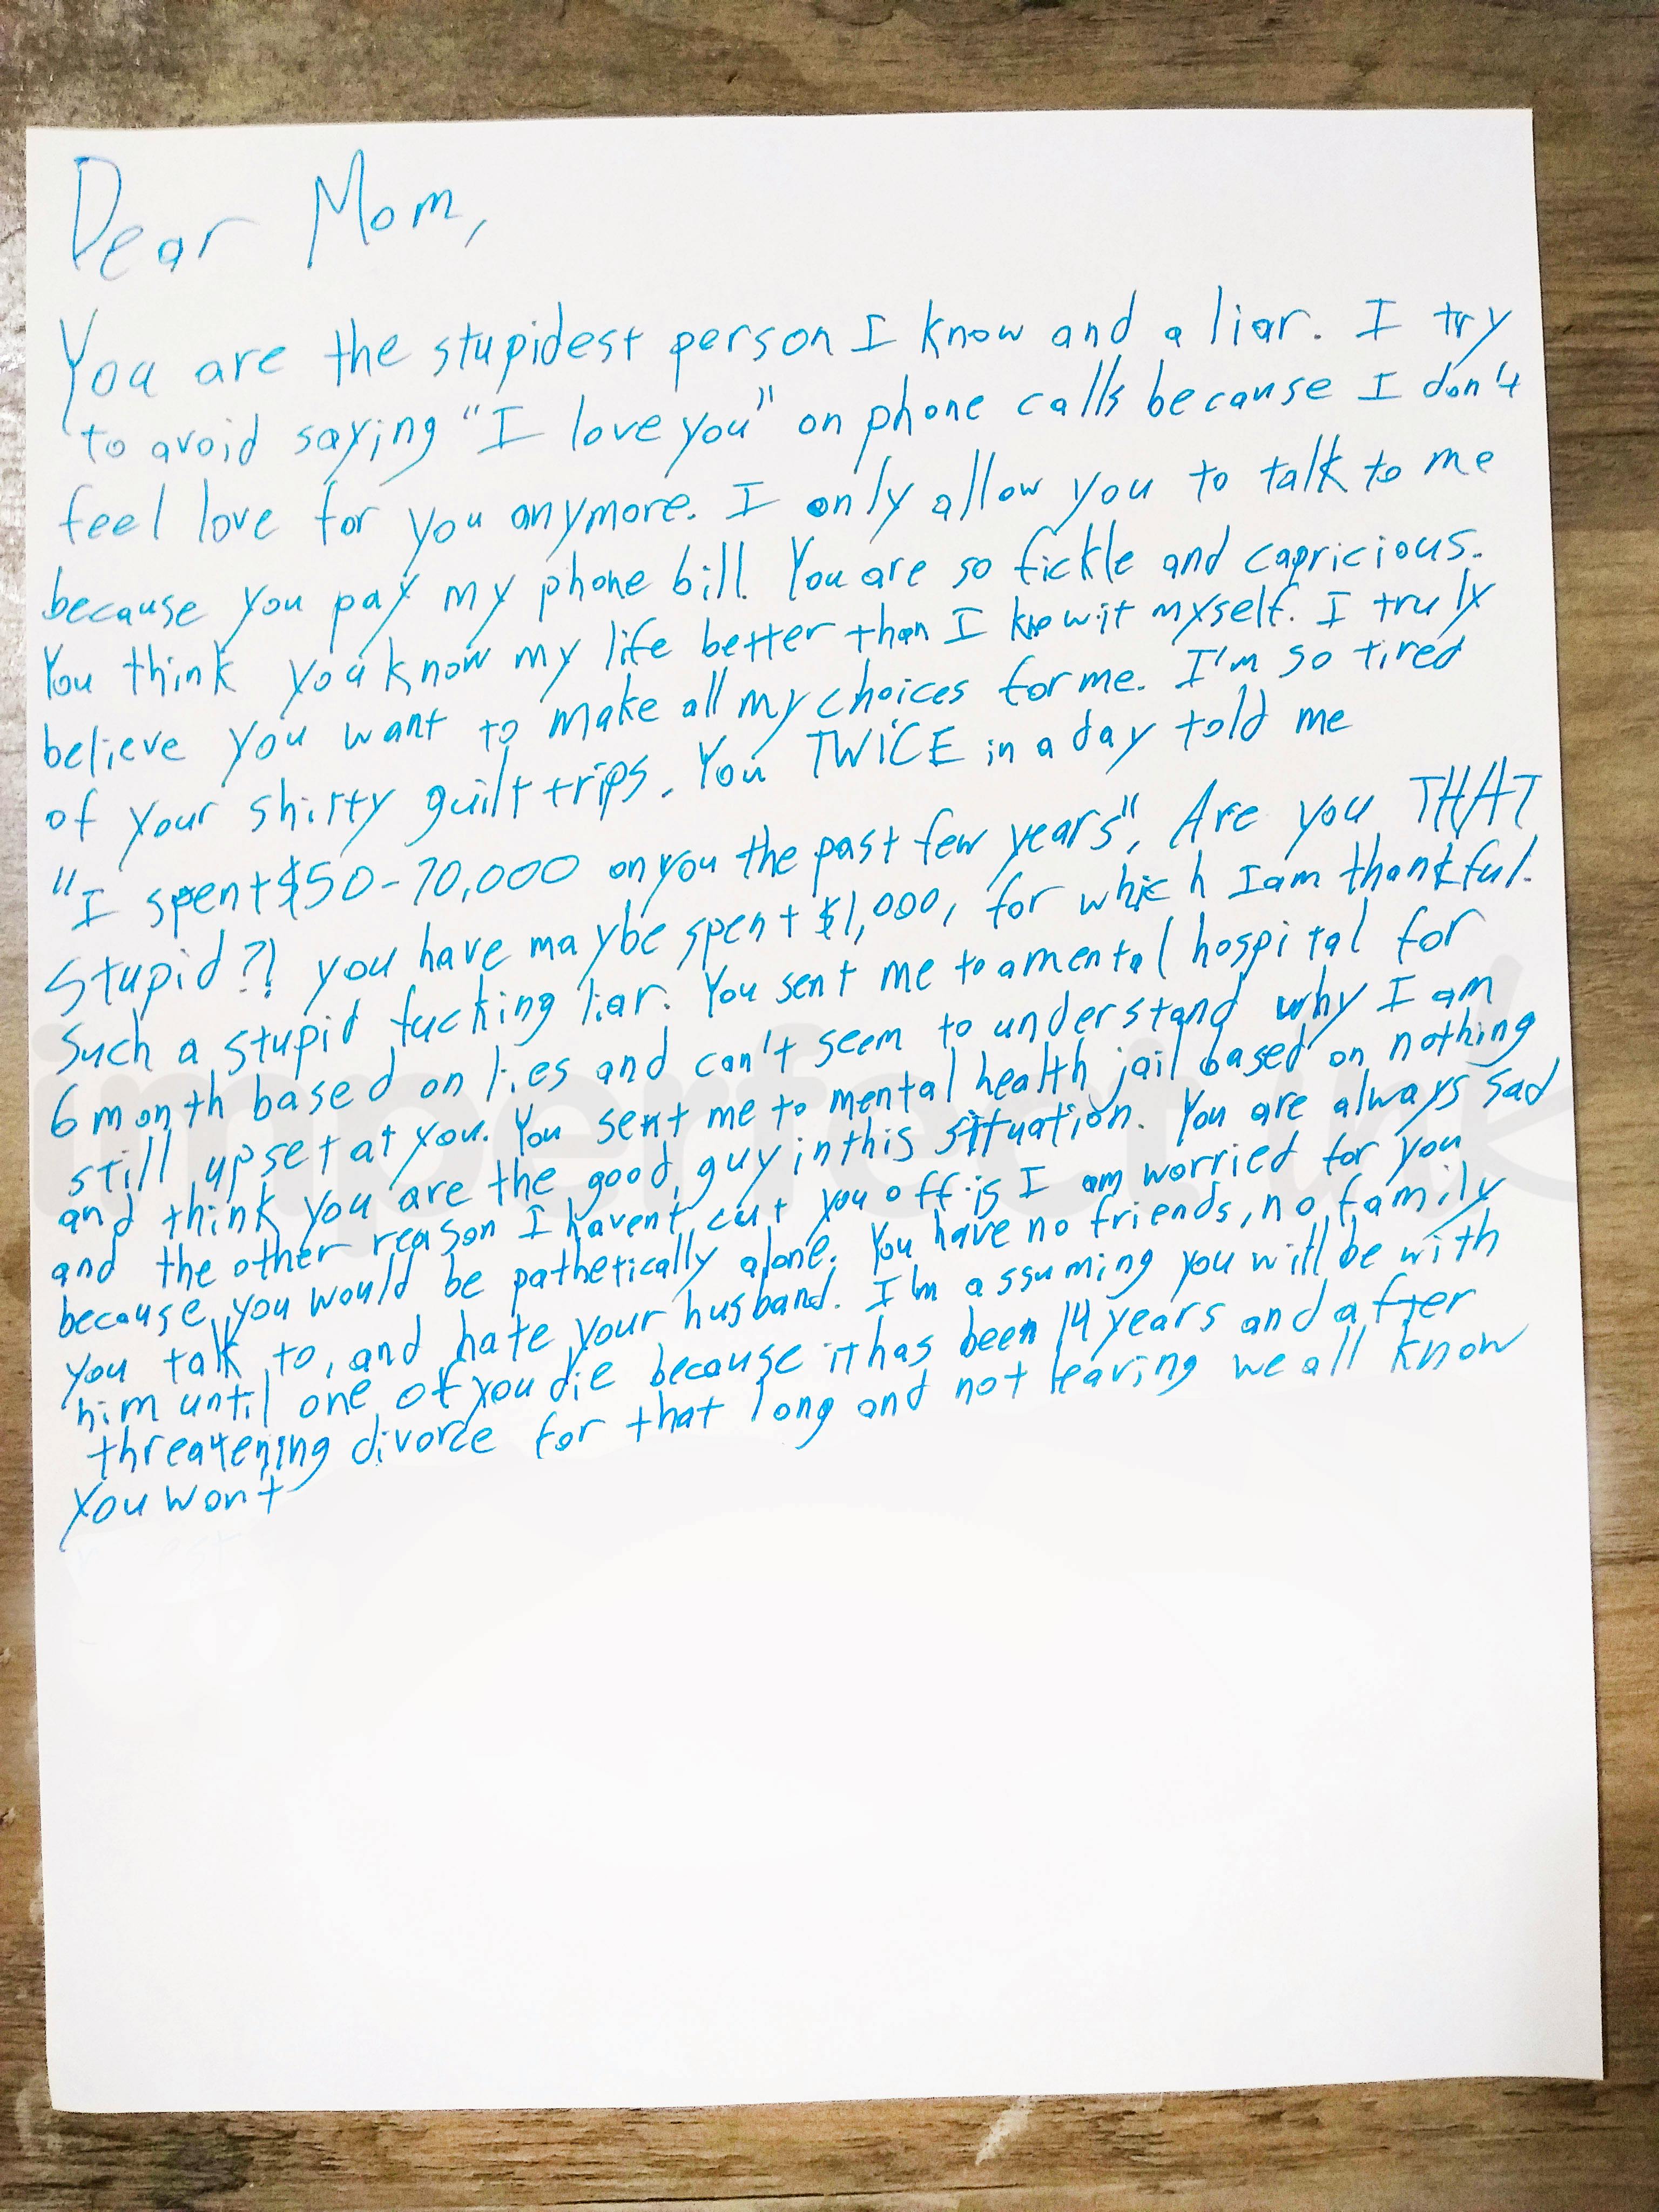 Dear Mom,
You are the stupidest person I know and a liar. I try
to avoid saying "I love you" on phone calls because I don't
feel love for you anymore. I only allow you to talk to me
because you pay my phone bill. You are so fickle and capricious.
You think you know my life better than I know it myself. I truly
believe you want to make all my choices for me. I'm so tired
of your shitty guilt trips. You TWICE in a day told me
"I spent $50-70,000 on you the past few years", Are you THAT
stupid?! you have maybe spent $1,000, for which I am thankful.
Such a stupid fucking liar. You sent me to a mental hospital for
6 month based on lies and can't seem to understand why I am
still upset at you. You sent me to mental health jail based on nothing
and think you are the good guy in this situation. You are always sad
and the other reason I havent cut you off is I am worried for you
because you would be pathetically alone. You have no friends, no family
you talk to, and hate your husband. I'm assuming you will be with
him until one of you die because it has been 14 years and after
threatening divorce for that long and not leaving we all know
you wont
imperfect ink